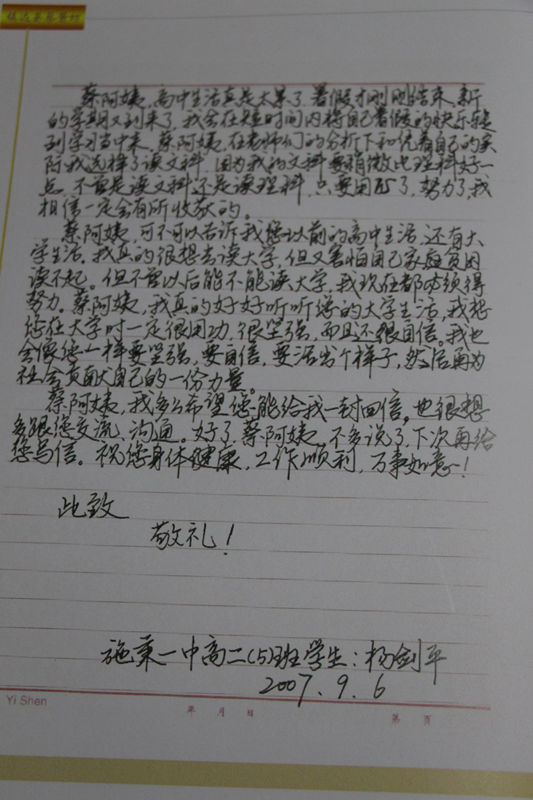 蔡阿姨,高中生活真是太累了,暑假才刚刚结束,新
的学期又到来了,我会在短时间内将自己暑假的快乐转
到学习当中来,蔡阿姨,在老师们的分析下和凭着自己的实
际我选择了读文科,因为我的文科要稍微比理科好一
点,不管是读文科还是读理科,只要用功了,努力了,我
相信一定会有所收获的。
蔡阿姨,可不可以告诉我您以前的高中生活,还有大
学生活,我真的很想去读大学,但又害怕自己家庭贫困
读不起。但不管以后能不能读大学,我现在都必须得
努力。蔡阿姨,我真的好好听听您的大学生活,我想
您在大学时一定很用功,很坚强,而且还很自信。我也
会像您一样要坚强,要自信,要活出个样子,然后再为
社会贡献自己的一份力量。
蔡阿姨,我多么希望您能给我一封回信。也很想
多跟您交流、沟通。好了,蔡阿姨,不多说了,下次再给
您写信。祝您身体健康,工作顺利,万事如意!
此致
敬礼!
施秉一中高二(5)班学生:杨剑平
2007.9.6
Yi Shen
年 月 日
第 页